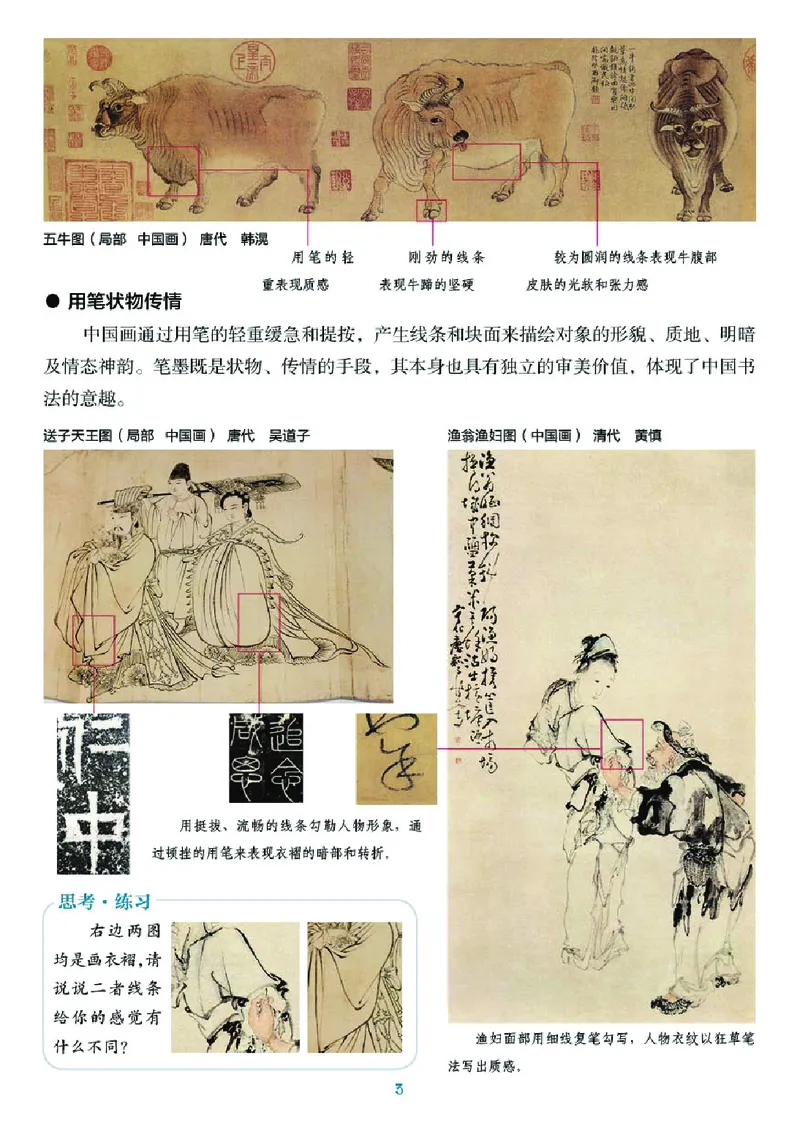 五牛图（局部 中国画） 唐代 韩滉
用笔的轻
重表现质感
刚劲的线条
表现牛蹄的坚硬
较为圆润的线条表现牛腹部
皮肤的光软和张力感
● 用笔状物传情
中国画通过用笔的轻重缓急和提按，产生线条和块面来描绘对象的形貌、质地、明暗
及情态神韵。笔墨既是状物、传情的手段，其本身也具有独立的审美价值，体现了中国书
法的意趣。
送子天王图（局部 中国画） 唐代 吴道子
渔翁渔妇图（中国画） 清代 黄慎
仁
中
追念
咸恩
用挺拔、流畅的线条勾勒人物形象，通
过顿挫的用笔来表现衣褶的暗部和转折。
思考·练习
右边两图
均是画衣褶，请
说说二者线条
给你的感觉有
什么不同？
渔妇面部用细线复笔勾写，人物衣纹以狂草笔
法写出质感。
3